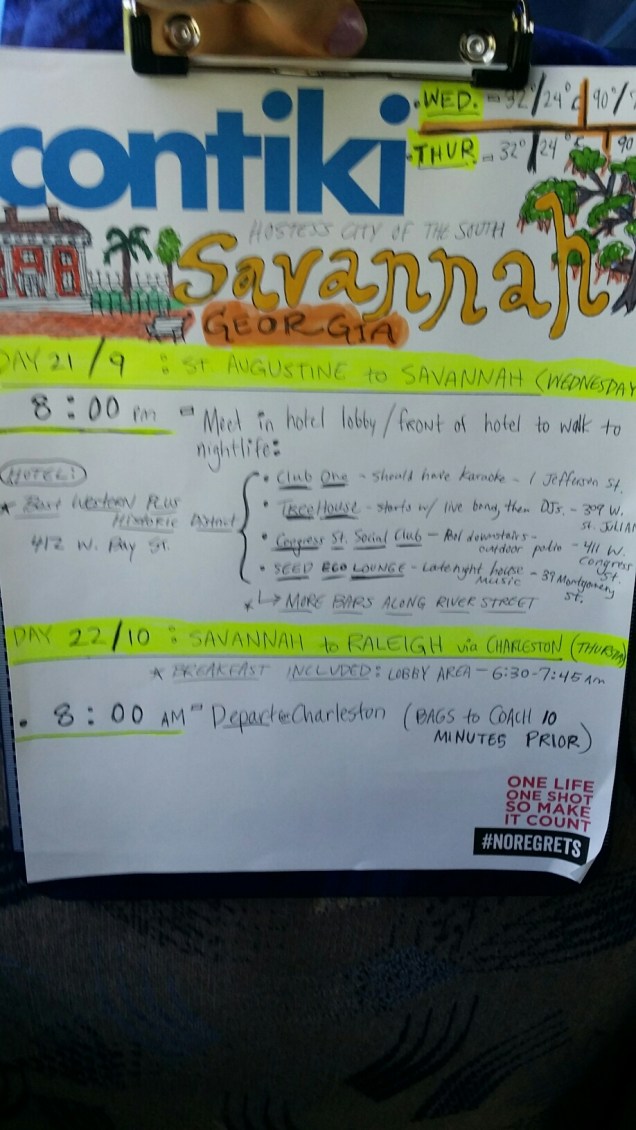 contiki
• WED. - 32°/24°c 90°/
• THUR - 32°/24°c 90
HOSTESS CITY OF THE SOUTH
Savannah
GEORGIA
DAY 21/9 : ST. AUGUSTINE to SAVANNAH (WEDNESDAY
8:00 PM = Meet in hotel lobby/front of hotel to walk to
nightlife:
HOTEL:
* Best Western Plus
Historic District
412 W. Bay St.
• Club One - Should have karaoke - 1 Jefferson St.
• TreeHouse - starts w/ live band, then DJs. - 309 W.
St. JULIAN
• Congress St. Social Club - Pool downstairs -
outdoor patio - 411 W.
Congress
St.
• SEED ECO LOUNGE - Late night house
Music - 39 Montgomery
St.
* ↳ MORE BARS ALONG RIVER STREET
DAY 22/10 : SAVANNAH to RALEIGH via CHARLESTON (THURSDAY
* BREAKFAST INCLUDED: LOBBY AREA - 6:30-7:45 AM
• 8:00 AM = Depart Charleston (BAGS to COACH 10
MINUTES PRIOR)
ONE LIFE
ONE SHOT
SO MAKE
IT COUNT
#NOREGRETS